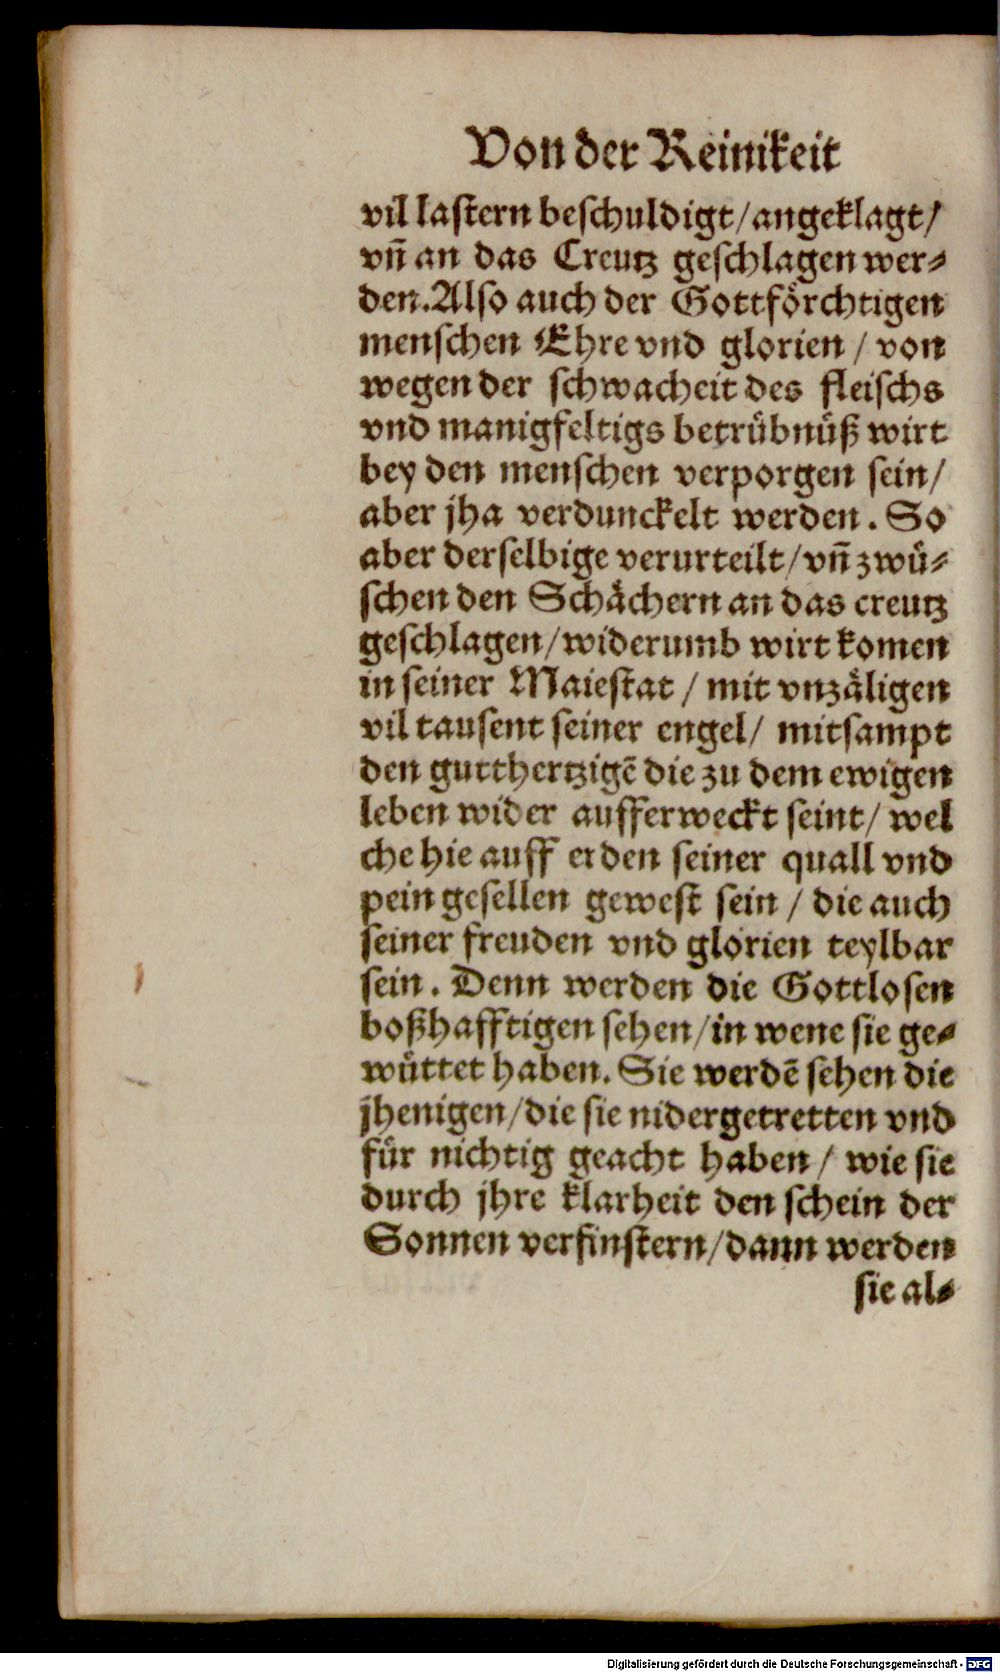 Von der Reinikeit
vil lastern beschuldigt/angeklagt/
vn̄ an das Creutz geschlagen wer⸗
den. Also auch der Gottfoͤrchtigen
menschen Ehre vnd glorien / von
wegen der schwacheit des fleischs
vnd manigfeltigs betruͤbnuͤß wirt
bey den menschen verporgen sein/
aber jha verdunckelt werden. So
aber derselbige verurteilt/vn̄ zwuͤ⸗
schen den Schaͤchern an das creutz
geschlagen/widerumb wirt komen
in seiner Maiestat / mit vnzaͤligen
vil tausent seiner engel/ mitsampt
den gutthertzigē die zu dem ewigen
leben wider aufferweckt seint/ wel
che hie auff erden seiner quall vnd
pein gesellen gewest sein / die auch
seiner freuden vnd glorien teylbar
sein. Denn werden die Gottlosen
boßhafftigen sehen/in wene sie ge⸗
wuͤttet haben. Sie werdē sehen die
jhenigen/die sie nidergetretten vnd
fuͤr nichtig geacht haben / wie sie
durch jhre klarheit den schein der
Sonnen verfinstern/dann werden
sie al⸗
Digitalisierung gefördert durch die Deutsche Forschungsgemeinschaft - DFG